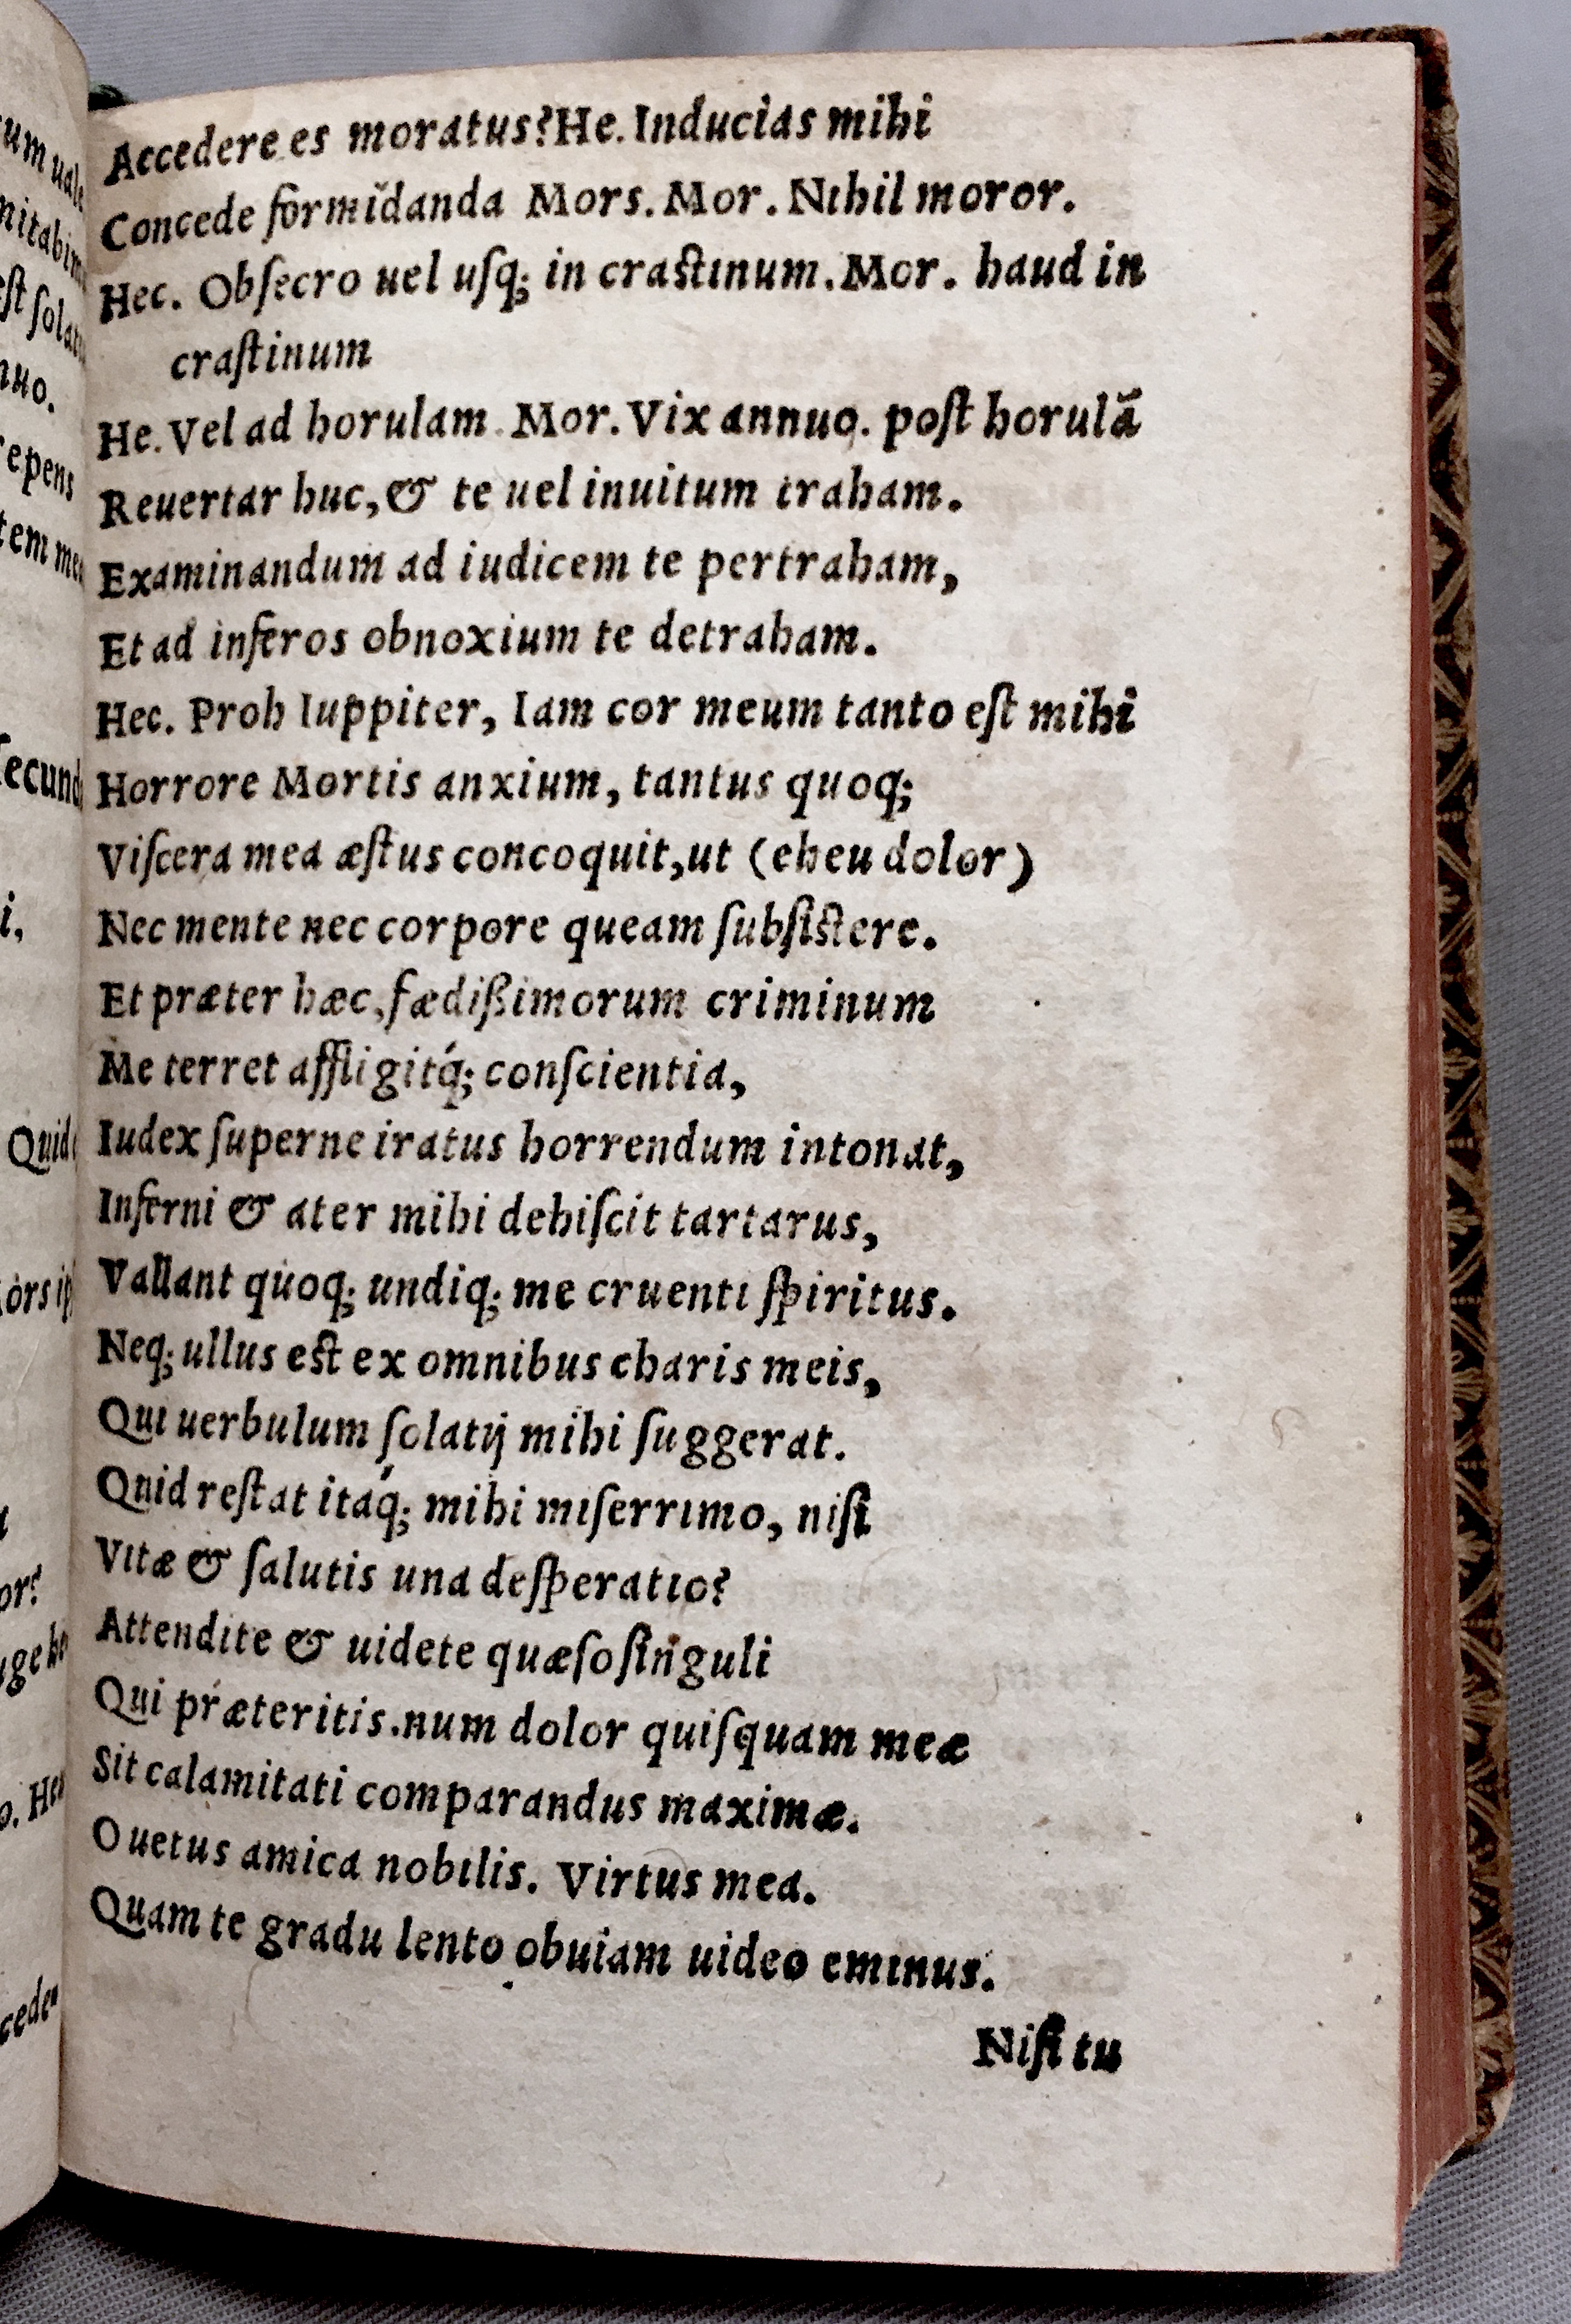 Accedere es moratus? He. Inducias mihi
Concede formidanda Mors. Mor. Nihil moror.
Hec. Obſecro uel uſq; in craſtinum. Mor. haud in
craſtinum
He. Vel ad horulam. Mor. Vix annuo. poſt horulā
Reuertar huc, & te uel inuitum traham.
Examinandum ad iudicem te pertraham,
Et ad inferos obnoxium te detraham.
Hec. Proh Iuppiter, Iam cor meum tanto eſt mihi
Horrore Mortis anxium, tantus quoq;
Viſcera mea æſtus concoquit, ut (eheu dolor)
Nec mente nec corpore queam ſubſiſtere.
Et præter hæc, fædiſſimorum criminum
Me terret affligitq́; conſcientia,
Iudex ſuperne iratus horrendum intonat,
Inferni & ater mihi dehiſcit tartarus,
Vallant quoq; undiq; me cruenti ſpiritus.
Neq; ullus eſt ex omnibus charis meis,
Qui uerbulum ſolatij mihi ſuggerat.
Quid reſtat itaq́; mihi miſerrimo, niſi
Vitæ & ſalutis una deſperatio?
Attendite & uidete quæſo ſinguli
Qui præteritis. num dolor quiſquam meæ
Sit calamitati comparandus maximæ.
O uetus amica nobilis. Virtus mea.
Quam te gradu lento obuiam uideo eminus.
Niſi tu